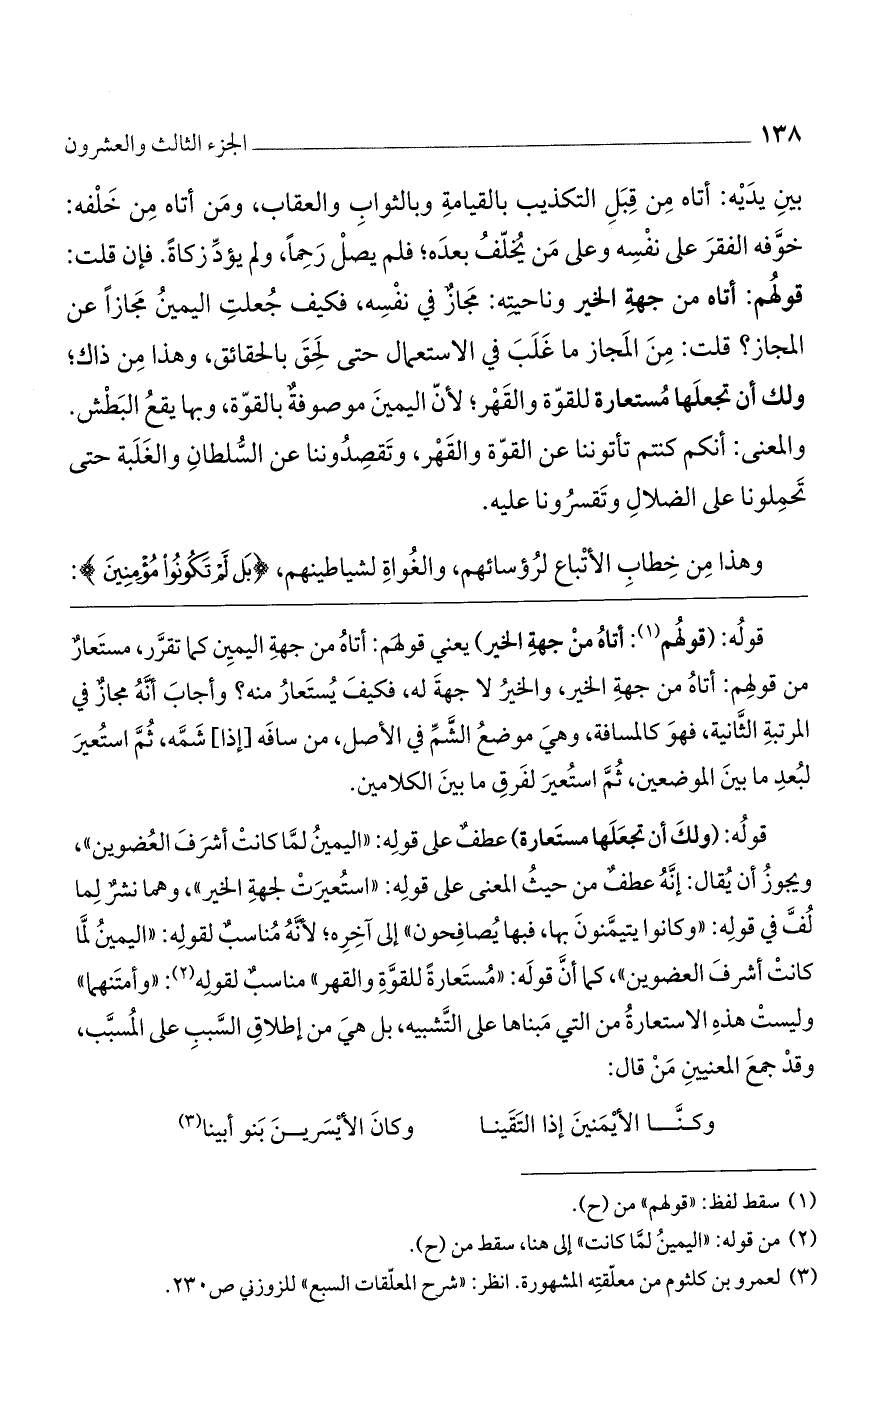 ١٣٨ الجزء الثالث والعشرون
بينِ يدَيْه: أتاه مِن قِبَلِ التكذيب بالقيامةِ وبالثوابِ والعقاب، ومَن أتاه مِن خَلْفه:
خوَّفه الفقرَ على نفْسِه وعلى مَن يُخلّفُ بعدَه؛ فلم يصلْ رَحِماً، ولم يؤدِّ زكاةً. فإن قلت:
قولُهم: أتاه من جهةِ الخير وناحيتِه: مَجازٌ في نفْسِه، فكيف جُعلتِ اليمينُ مَجازاً عن
المجاز؟ قلت: مِنَ المَجاز ما غَلَبَ في الاستعمال حتى لَحِقَ بالحقائق، وهذا مِن ذاك؛
ولك أن تجعلَها مُستعارة للقوّة والقَهْر؛ لأنّ اليمينَ موصوفةٌ بالقوّة، وبها يقعُ البَطْش.
والمعنى: أنكم كنتم تأتوننا عن القوّة والقَهْر، وتَقصِدُوننا عن السُّلطانِ والغَلَبة حتى
تَحمِلونا على الضلالِ وتَقسرُونا عليه.
وهذا مِن خِطابِ الأتْباع لرُؤسائهم، والغُواةِ لشياطينهم، ﴿بَل لَّمْ تَكُونُواْ مُؤْمِنِينَ﴾:
قولُه: (قولُهم(١): أتاهُ منْ جهةِ الخير) يعني قولهَم: أتاهُ من جهةِ اليمينِ كما تقرَّر، مستَعارٌ
من قولهِم: أتاهُ من جهةِ الخير، والخيرُ لا جهةَ له، فكيفَ يُستَعارُ منه؟ وأجابَ أنَّهُ مجازٌ في
المرتبةِ الثَّانية، فهوَ كالمسافة، وهيَ موضعُ الشَّمِّ في الأصل، من سافَه [إذا] شَمَّه، ثُمَّ استُعيرَ
لبُعدِ ما بينَ الموضعين، ثُمَّ استُعيرَ لفَرقِ ما بينَ الكلامين.
قولُه: (ولكَ أن تجعَلَها مستَعارة) عطفٌ على قولِه: «اليمينُ لمَّا كانتْ أشرَفَ العُضوين»،
ويجوزُ أن يُقال: إنَّهُ عطفٌ من حيثُ المعنى على قولِه: «استُعيرَتْ لجهةِ الخير»، وهما نشرٌ لِما
لُفَّ في قولِه: «وكانوا يتيمَّنونَ بها، فبها يُصافِحون» إلى آخِرِه؛ لأنَّهُ مُناسبٌ لقولِه: «اليمينُ لمَّا
كانتْ أشرفَ العضوين»، كما أنَّ قولَه: «مُستَعارةً للقوَّةِ والقهر» مناسبٌ لقولِه(٢): «وأمتَنهما»
وليستْ هذهِ الاستعارةُ من التي مَبناها على التَّشبيه، بل هيَ من إطلاقِ السَّببِ على المُسبَّب،
وقدْ جمعَ المعنيينِ مَنْ قال:
وكنَّـــا الأيْمَنينَ إذا التَقَينـا وكانَ الأيْسَريـــنَ بَنو أبينا(٣)
(١) سقط لفظ: «قولهم» من (ح).
(٢) من قوله: «اليمينُ لمَّا كانت» إلى هنا، سقط من (ح).
(٣) لعمرو بن كلثوم من معلّقتِه المشهورة. انظر: «شرح المعلّقات السبع» للزوزني ص٢٣٠.